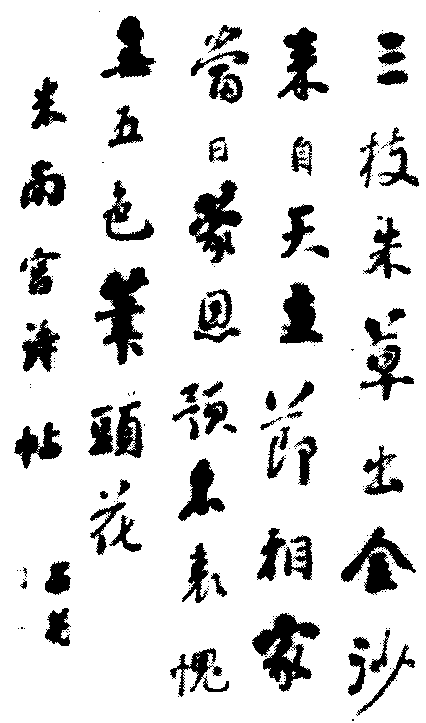 三枝朱草出金沙
来自天節相家
當日蒙恩預名表愧
無五色筆頭花
米南宮詩帖